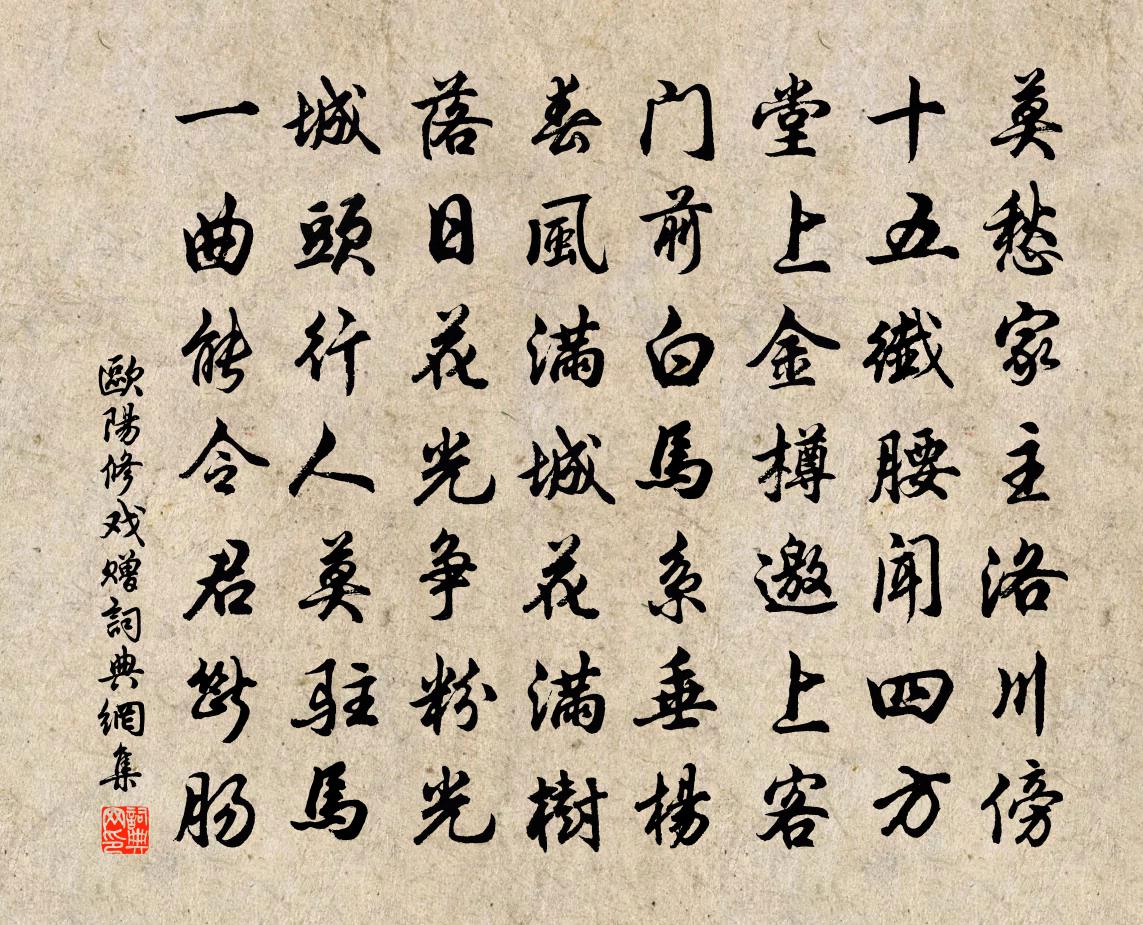 莫愁家主洛川傍
十五纖腰闻四方
堂上金樽邀上客
门前白馬系垂楊
春風滿城花滿樹
落日花光争粉光
城頭行人莫駐馬
一曲能令君斷肠
歐陽修戏赠詞典網集
詞典网印